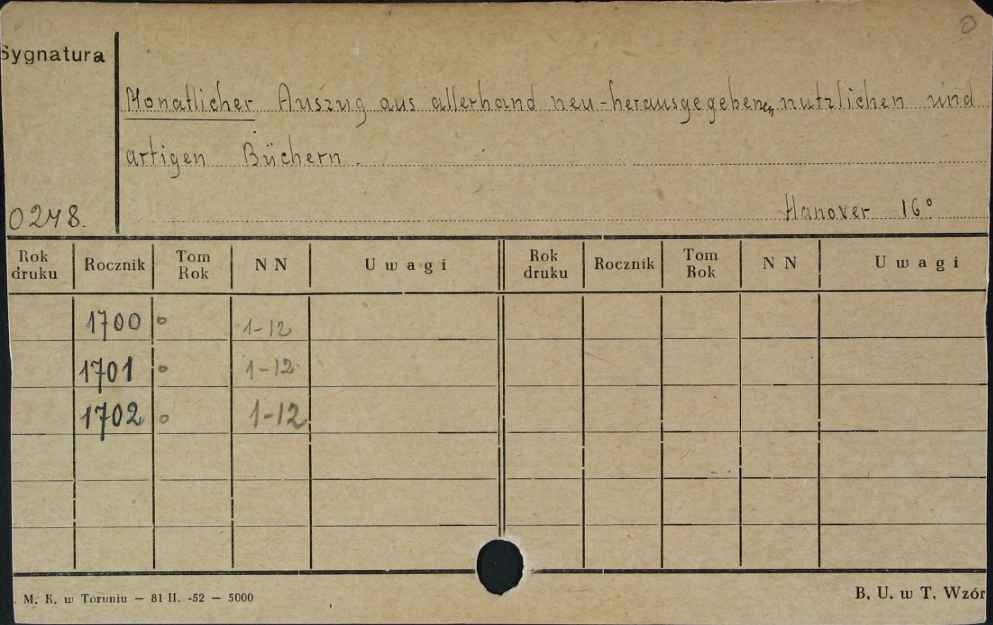 0
Sygnatura
Monatlicher Auszug aus allerhand neu-herausgegebenen, nutzlichen und
artigen Büchern.
0248.
Hanover 16°
Rok druku Rocznik Tom Rok N N Uwagi Rok druku Rocznik Tom Rok N N Uwagi
1700 o 1-12
1701 o 1-12
1702 o 1-12
. M. K. w Toruniu — 81 II. -52 — 5000
B. U. w T. Wzór